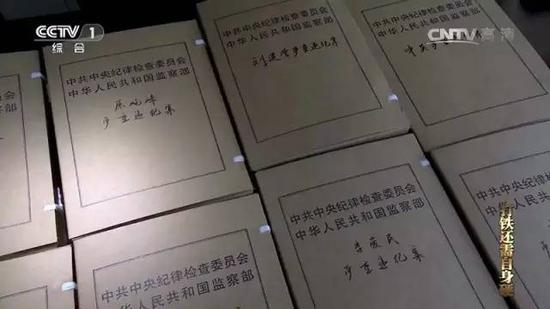 CCTV 1
综合
CNTV 高清
中共中央纪律检查委员会
中华人民共和国监察部
刘建营严重违纪案
中共中央纪律检查委员会
中华人民共和国监察部
中共中央纪律检查委员会
中华人民共和国监察部
严重违纪案
中共中央纪律检查委员会
中华人民共和国监察部
严重违纪案
中共中央纪律检查委员会
中华人民共和国监察部
打铁还需自身硬